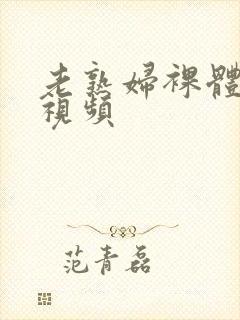 老熟婦裸體
視頻
范青磊